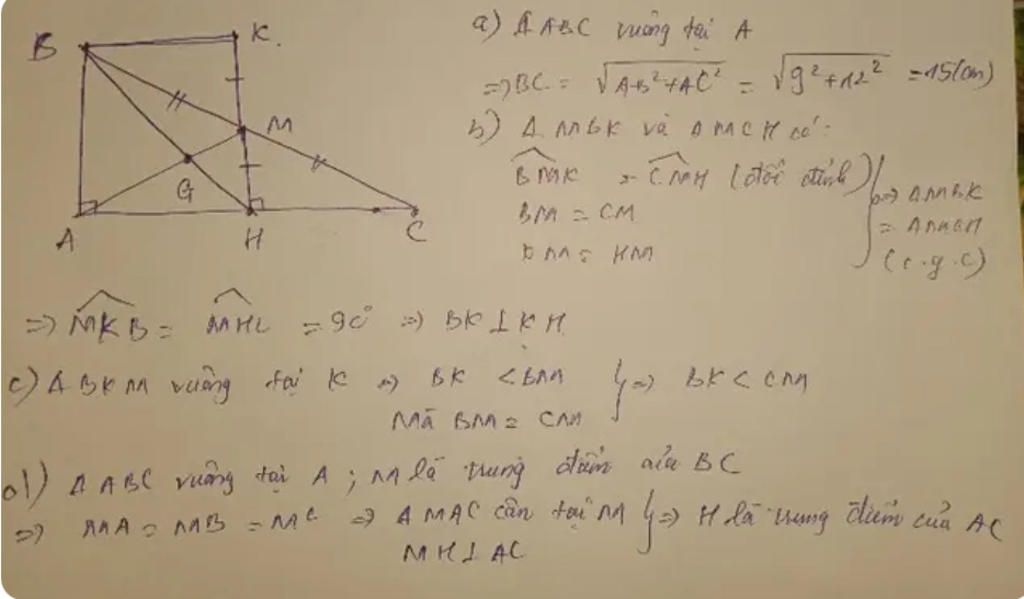 B
K.
M
G
A
H
C
a) Δ ABC vuông tại A
=> BC = √AB²+AC² = √9²+12² = 15(cm)
b) Δ MBK và Δ MCH có:
BMK = CMH (đối đỉnh)
BM = CM
KM = HM
=> Δ MBK
= Δ MCH
(c.g.c)
=> MKB = MHC = 90° => BK ⊥ KH
c) Δ BKM vuông tại K => BK < BM
Mà BM = CM
} => BK < CM
d) Δ ABC vuông tại A ; M là trung điểm của BC
=> MA = MB = MC => Δ MAC cân tại M
MH ⊥ AC
} => H là trung điểm của AC